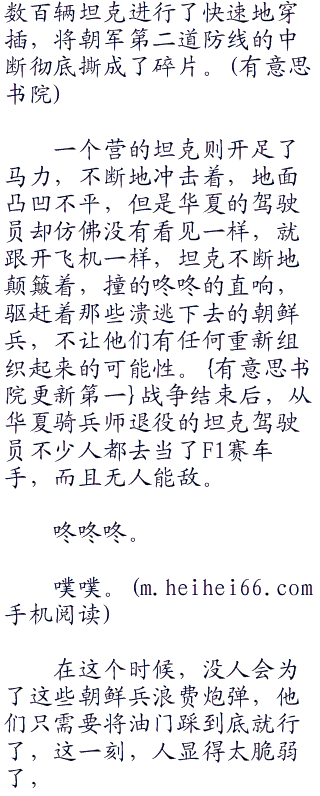 数百辆坦克进行了快速地穿
插，将朝军第二道防线的中
断彻底撕成了碎片。(有意思
书院)
一个营的坦克则开足了
马力，不断地冲击着，地面
凸凹不平，但是华夏的驾驶
员却仿佛没有看见一样，就
跟开飞机一样，坦克不断地
颠簸着，撞的咚咚的直响，
驱赶着那些溃逃下去的朝鲜
兵，不让他们有任何重新组
织起来的可能性。{有意思书
院更新第一}战争结束后，从
华夏骑兵师退役的坦克驾驶
员不少人都去当了F1赛车
手，而且无人能敌。
咚咚咚。
噗噗。(m.heihei66.com
手机阅读)
在这个时候，没人会为
了这些朝鲜兵浪费炮弹，他
们只需要将油门踩到底就行
了，这一刻，人显得太脆弱
了，